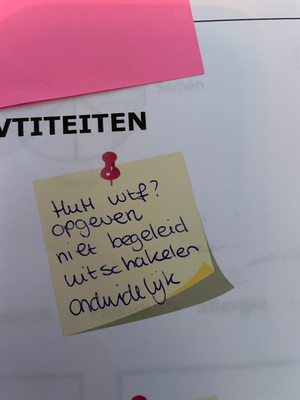 VTITEITEN
Huh wtf?
opgeven
niet begeleid
uitschakelen
onduidelijk